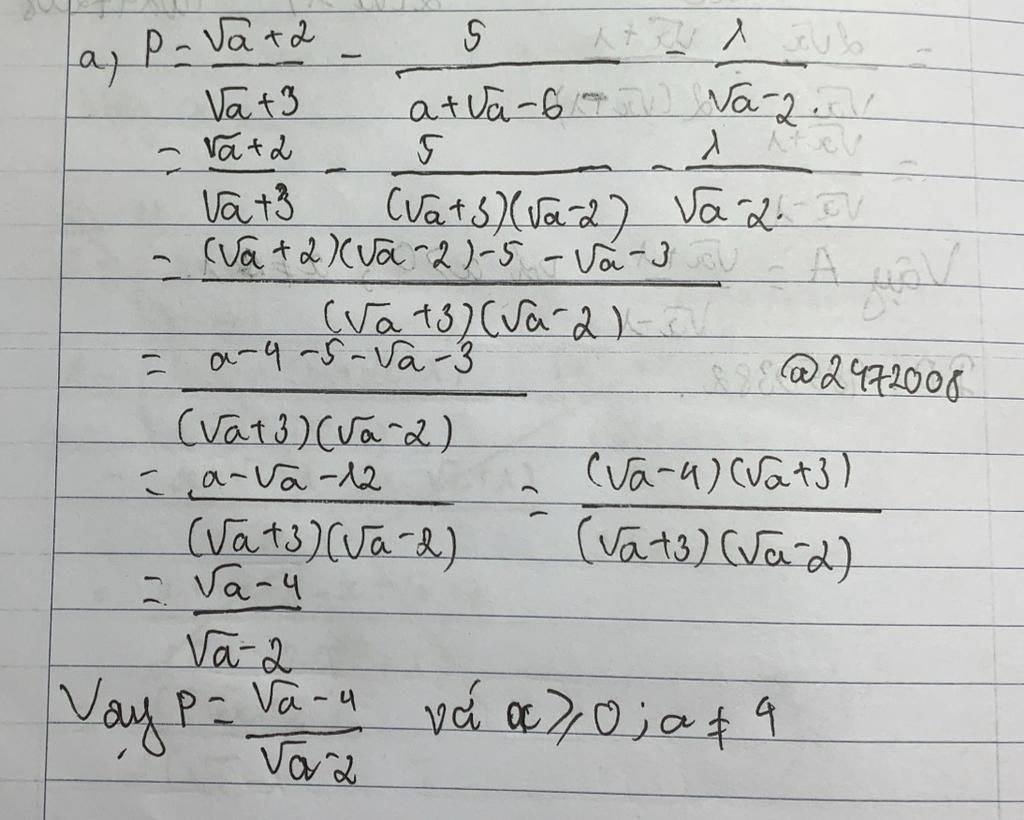 a, P = (√a + 2)/(√a + 3) - 5/(a + √a - 6) - 1/(√a - 2).
= (√a + 2)/(√a + 3) - 5/((√a + 3)(√a - 2)) - 1/(√a - 2).
= ((√a + 2)(√a - 2) - 5 - √a - 3)/((√a + 3)(√a - 2))
= (a - 4 - 5 - √a - 3)/((√a + 3)(√a - 2))
@2472008
= (a - √a - 12)/((√a + 3)(√a - 2)) = ((√a - 4)(√a + 3))/((√a + 3)(√a - 2))
= (√a - 4)/(√a - 2)
Vậy P = (√a - 4)/(√a - 2) với a ⩾ 0 ; a ≠ 4